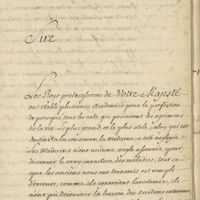 Sire
Les Roys predecesseurs de Votre Majesté
ont etably plusieurs Academies pour la perfection
de presque tous les arts qui procurent les agremens
de la vie. Le plus grand et le plus utile, celuy qui est
destiné a la conserver, la medecine a eté negligée.
Les Medecins nont aucune regle assurée, pour
decouvrir le vray caractere des maladies, tout ce
que les anciens nous ont transmis est remply
d'erreurs, comme ils ignoroient lanatomie, ils
nont pu decouvrir la liaison des accidens exterieurs